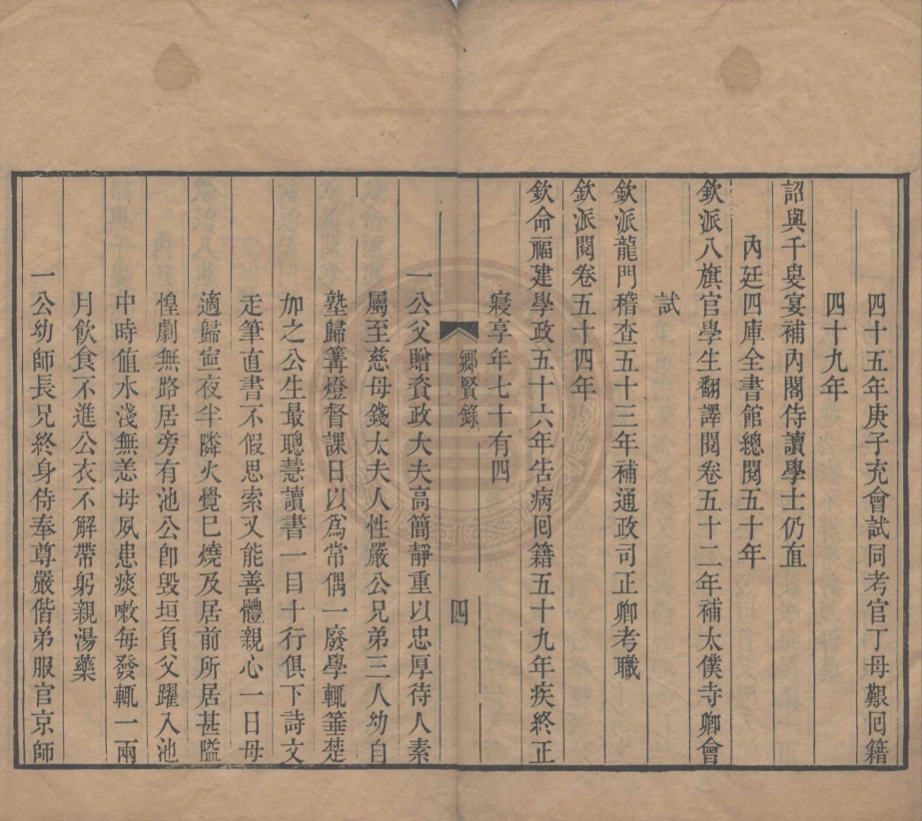 四十五年庚子充會試同考官丁母艱囘籍
四十九年
詔與千叟宴補內閣侍讀學士仍直
內廷四庫全書館總閱五十年
欽派八旗官學生翻譯閱卷五十二年補太僕寺卿會
試
欽派龍門稽查五十三年補通政司正卿考職
欽派閱卷五十四年
欽命福建學政五十六年告病囘籍五十九年疾終正
寢享年七十有四
鄉賢錄
四
一公父贈資政大夫高簡靜重以忠厚待人素
屬至慈母錢太夫人性嚴公兄弟三人幼自
塾歸篝燈督課日以爲常偶一廢學輒箠楚
加之公生最聰慧讀書一目十行俱下詩文
走筆直書不假思索又能善體親心一日母
適歸寧夜半隣火覺已燒及居前所居甚隘
惶劇無路居旁有池公卽毀垣負父躍入池
中時值水淺無恙母夙患痰嗽每發輒一兩
月飲食不進公衣不解帶躬親湯藥
一公幼師長兄終身侍奉尊嚴偕弟服官京師